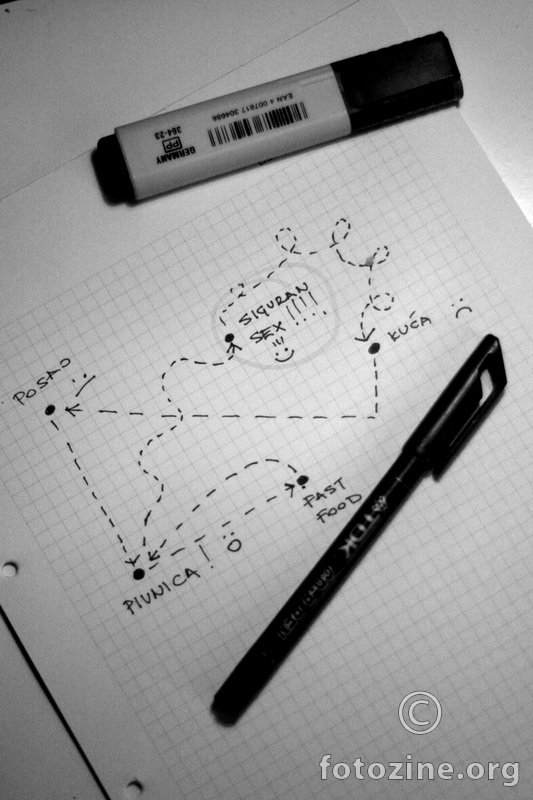 EAN 4 007817 304686
GERMANY
PP
364-23
SIGURAN
SEX !!!!....
!!!
KUĆA
POSAO
FAST
FOOD
PIVNICA !
TDK
©
fotozine.org